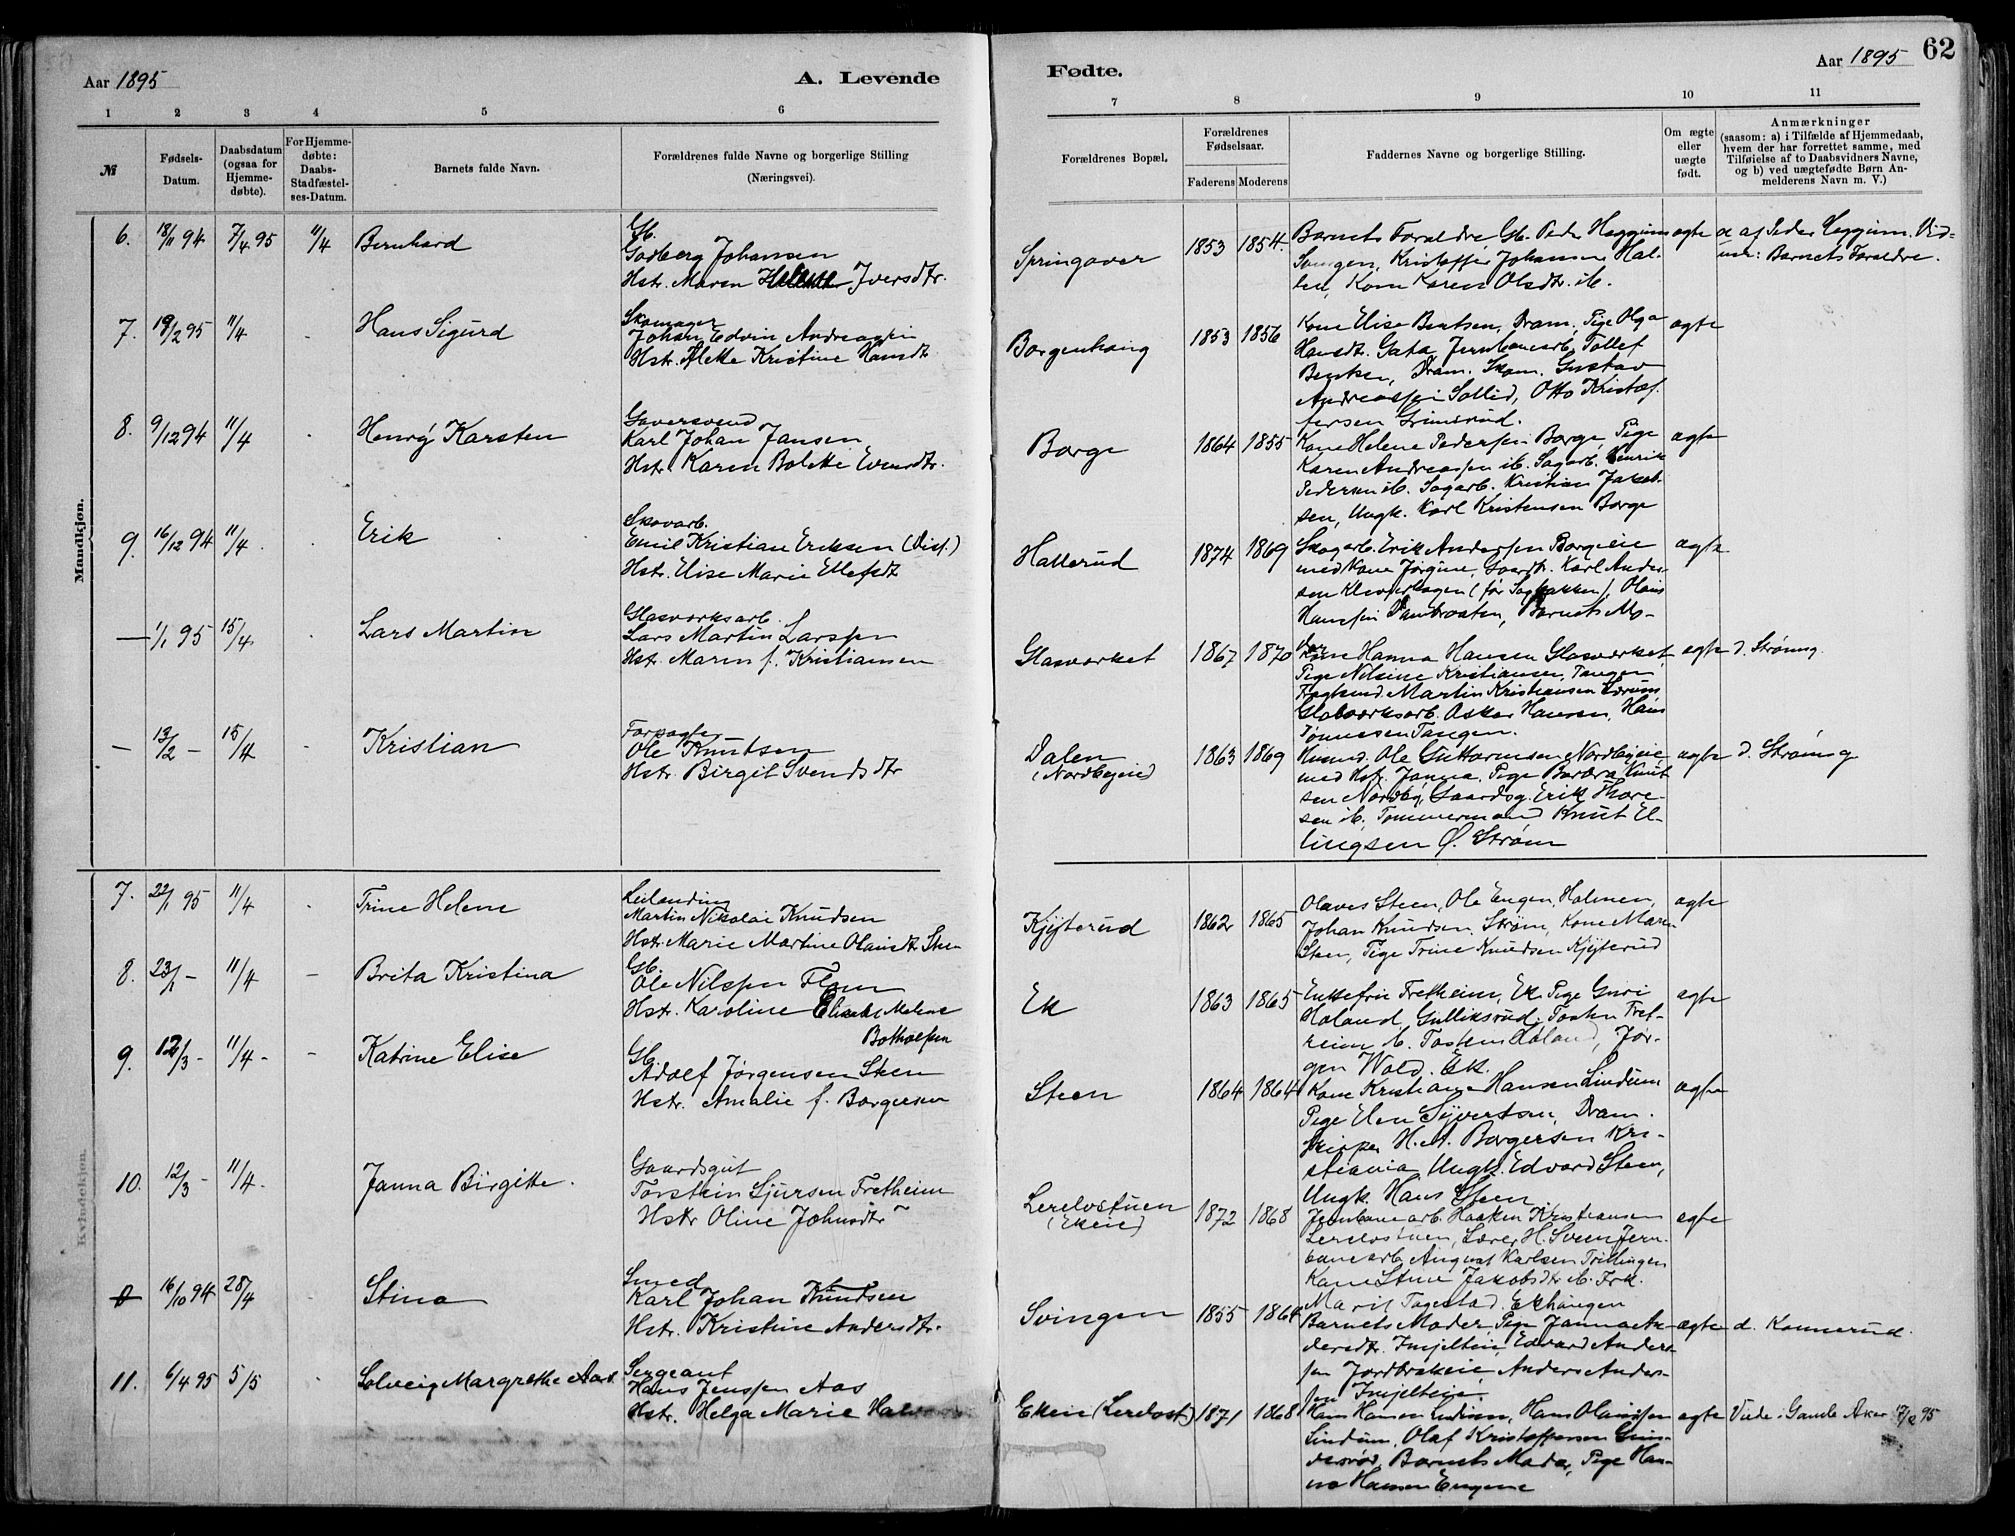 Aar 1895
A. Levende
Fødte.
Aar 1895
62
1 2 3 4 5 6 7 8 9 10 11
№
Fødsels-
Datum.
Daabsdatum
(ogsaa for
Hjemme-
døbte).
For Hjemme-
døbte:
Daabs-
Stadfæstel-
ses-Datum.
Barnets fulde Navn.
Forældrenes fulde Navne og borgerlige Stilling
(Næringsvei).
Forældrenes Bopæl.
Forældrenes
Fødselsaar.
Faderens Moderens
Faddernes Navne og borgerlige Stilling.
Om ægte
eller
uægte
født.
Anmærkninger
(saasom: a) i Tilfælde af Hjemmedaab,
hvem der har forrettet samme, med
Tilføielse af to Daabsvidners Navne,
og b) ved uægtefødte Børn An-
melderens Navn m. V.)
Mandkjøn.
6. 18/11 94 7/4 95 11/4 Bernhard
Gb.
Gudberg Johansen
Hst. Maren Helene Iversdtr.
Springover 1853 1854.
Barnets Forældre, Gb. Peder Heggum
Svingen, Kristoffer Johansen Hal-
len, Kone Karen Olsdtr. ib.
ægte
a af Peder Heggum. Vid-
ner: Barnets Forældre.
7. 19/2 95 11/4 - Hans Sigurd
Skomager
Johan Edvin Andreassen
Hst. Aleke Kristine Hansdt.
Borgenhaug 1853 1856
Kone Elise Bentsen, Dram., Pige Olga
Hansdt. Gata, Jernbanearb. Tollef
Bentsen, Dram. Skom. Gustav
Andreassen Sollid, Otto Kristof-
fersen Grimsrud.
ægte
8. 9/12 94 11/4 - Henry Karsten
Garversvend
Karl Johan Jansen
Hst. Karen Bolette Evensdtr.
Borge 1864 1855
Kone Helene Pedersen Borge, Pige
Karen Andreassen ib. Sagarb. Henrik
Pedersen ib. Sagarb. Kristian Jakob-
sen, Ungk. Karl Kristensen Borge
ægte
9. 16/12 94 11/4 - Erik
Skovarb.
Emil Kristian Eriksen (Diss.)
Hst. Elise Marie Ellefsdt
Hallerud 1874 1869
Skogarb. Erik Andersen Borgeie
med Kone Jørgine, Gaardbr. Karl Ander-
sen Kleverhagen (før Sagbakken), Olaus
Hansen Dambraaten, Barnets Mo-
der
ægte
— 1/1 95 15/4 - Lars Martin
Glasværksarb.
Lars Martin Larssen
Hst. Maren f. Kristiansen
Glasværket 1867 1870
Kone Hanna Hansen Glasværket,
Pige Nilsine Kristiansen, Tangen
Martin Kristiansen
Glasværksarb. Oskar Hansen, Hans
Tønnessen Tangen.
ægte
d. Strømsg.
— 13/2 — 15/4 - Kristian
Forpagter
Ole Knutsen
Hst. Birgit Svendsdtr
Dalen
(Nordbyeie)
1863 1869
Husmd. Ole Guttormsen Nordbyeie,
med Hst. Janna, Pige Barbra Knut-
sen Nordby, Gaardsg. Erik Thore-
sen ib., Tømmermand Knut El-
lingsen Ø. Strøm
ægte
d. Strømsg
Kvindekjøn.
7. 22/1 95 11/4 - Trine Helene
Leilending
Martin Nikolai Knudsen
Hst. Marie Martine Olausdt Steen
Kjylterud 1862 1865
Olaves Steen, Ole Engen, Holmen,
Johan Knudsen, Strøm, Kone Maren
Steen, Pige Trine Knudsen Kjylterud
ægte
8. 23/1 — 11/4 — Brita Kristina
Gb.
Ole Nilssen Flom
Hst. Karoline Elisabet Malene
Botholfsen
Ek 1863 1865
Enkefru Fretheim, Ek, Pige Guri
Haland, Gulliksrud, Tosten Fret-
heim ib. Tosten Haland, Jør-
gen Wold, Ek.
ægte
9. 12/3 - 11/4 - - Katrine Elise
Gb.
Adolf Jørgensen Steen
Hst. Amalie f. Borgersen
Steen 1864 1864
Kone Kristiane Hansen Lindum
Pige Elen Syvertsen, Dram.
Skipper H. A. Borgersen Kri-
stiania, Ungk. Edvard Steen,
Ungk. Hans Steen.
ægte
10. 12/3 - 11/4 - Janna Birgitte.
Gaardsgut
Torstein Sjursen Fretheim
Hstr Oline Johnsdtr
Lerelvstuen
(Ekeie)
1872 1868
Jernbanearb. Haaken Kristiansen
Lerelvstuen, Lærer H. Sveen, Jern-
banearb August Karlsen Trillingen
Kone Stine Jakobsdtr ib. Frk.
Marit Tagestad, Ekhaugen
ægte
0 16/10 94 28/4 - Stina
Smed
Karl Johan Knudsen
Hst. Kristine Andersdtr.
Svingen 1855 1864
Barnets Moder, Pige Janna An-
dersdtr. Imjelteie, Edvard Anders-
sen Jordbrækeie, Anders Anders-
sen Imjelteie.
ægte
d. Konnerud.
11. 6/4 95 5/5 - Solveig Margrethe Aas.
Sergeant
Hans Jenssen Aas
Hst. Helga Marie
Ekeie (Lerelvst.) 1871 1868
Hans Hansen Lindum, Hans Olaussen
Lindum, Olaf Kristoffersen Gun-
dersrød, Barnets Moder, Pige Han-
na Hansen Engene
ægte
Viede i Gamle Aker 17/2 95